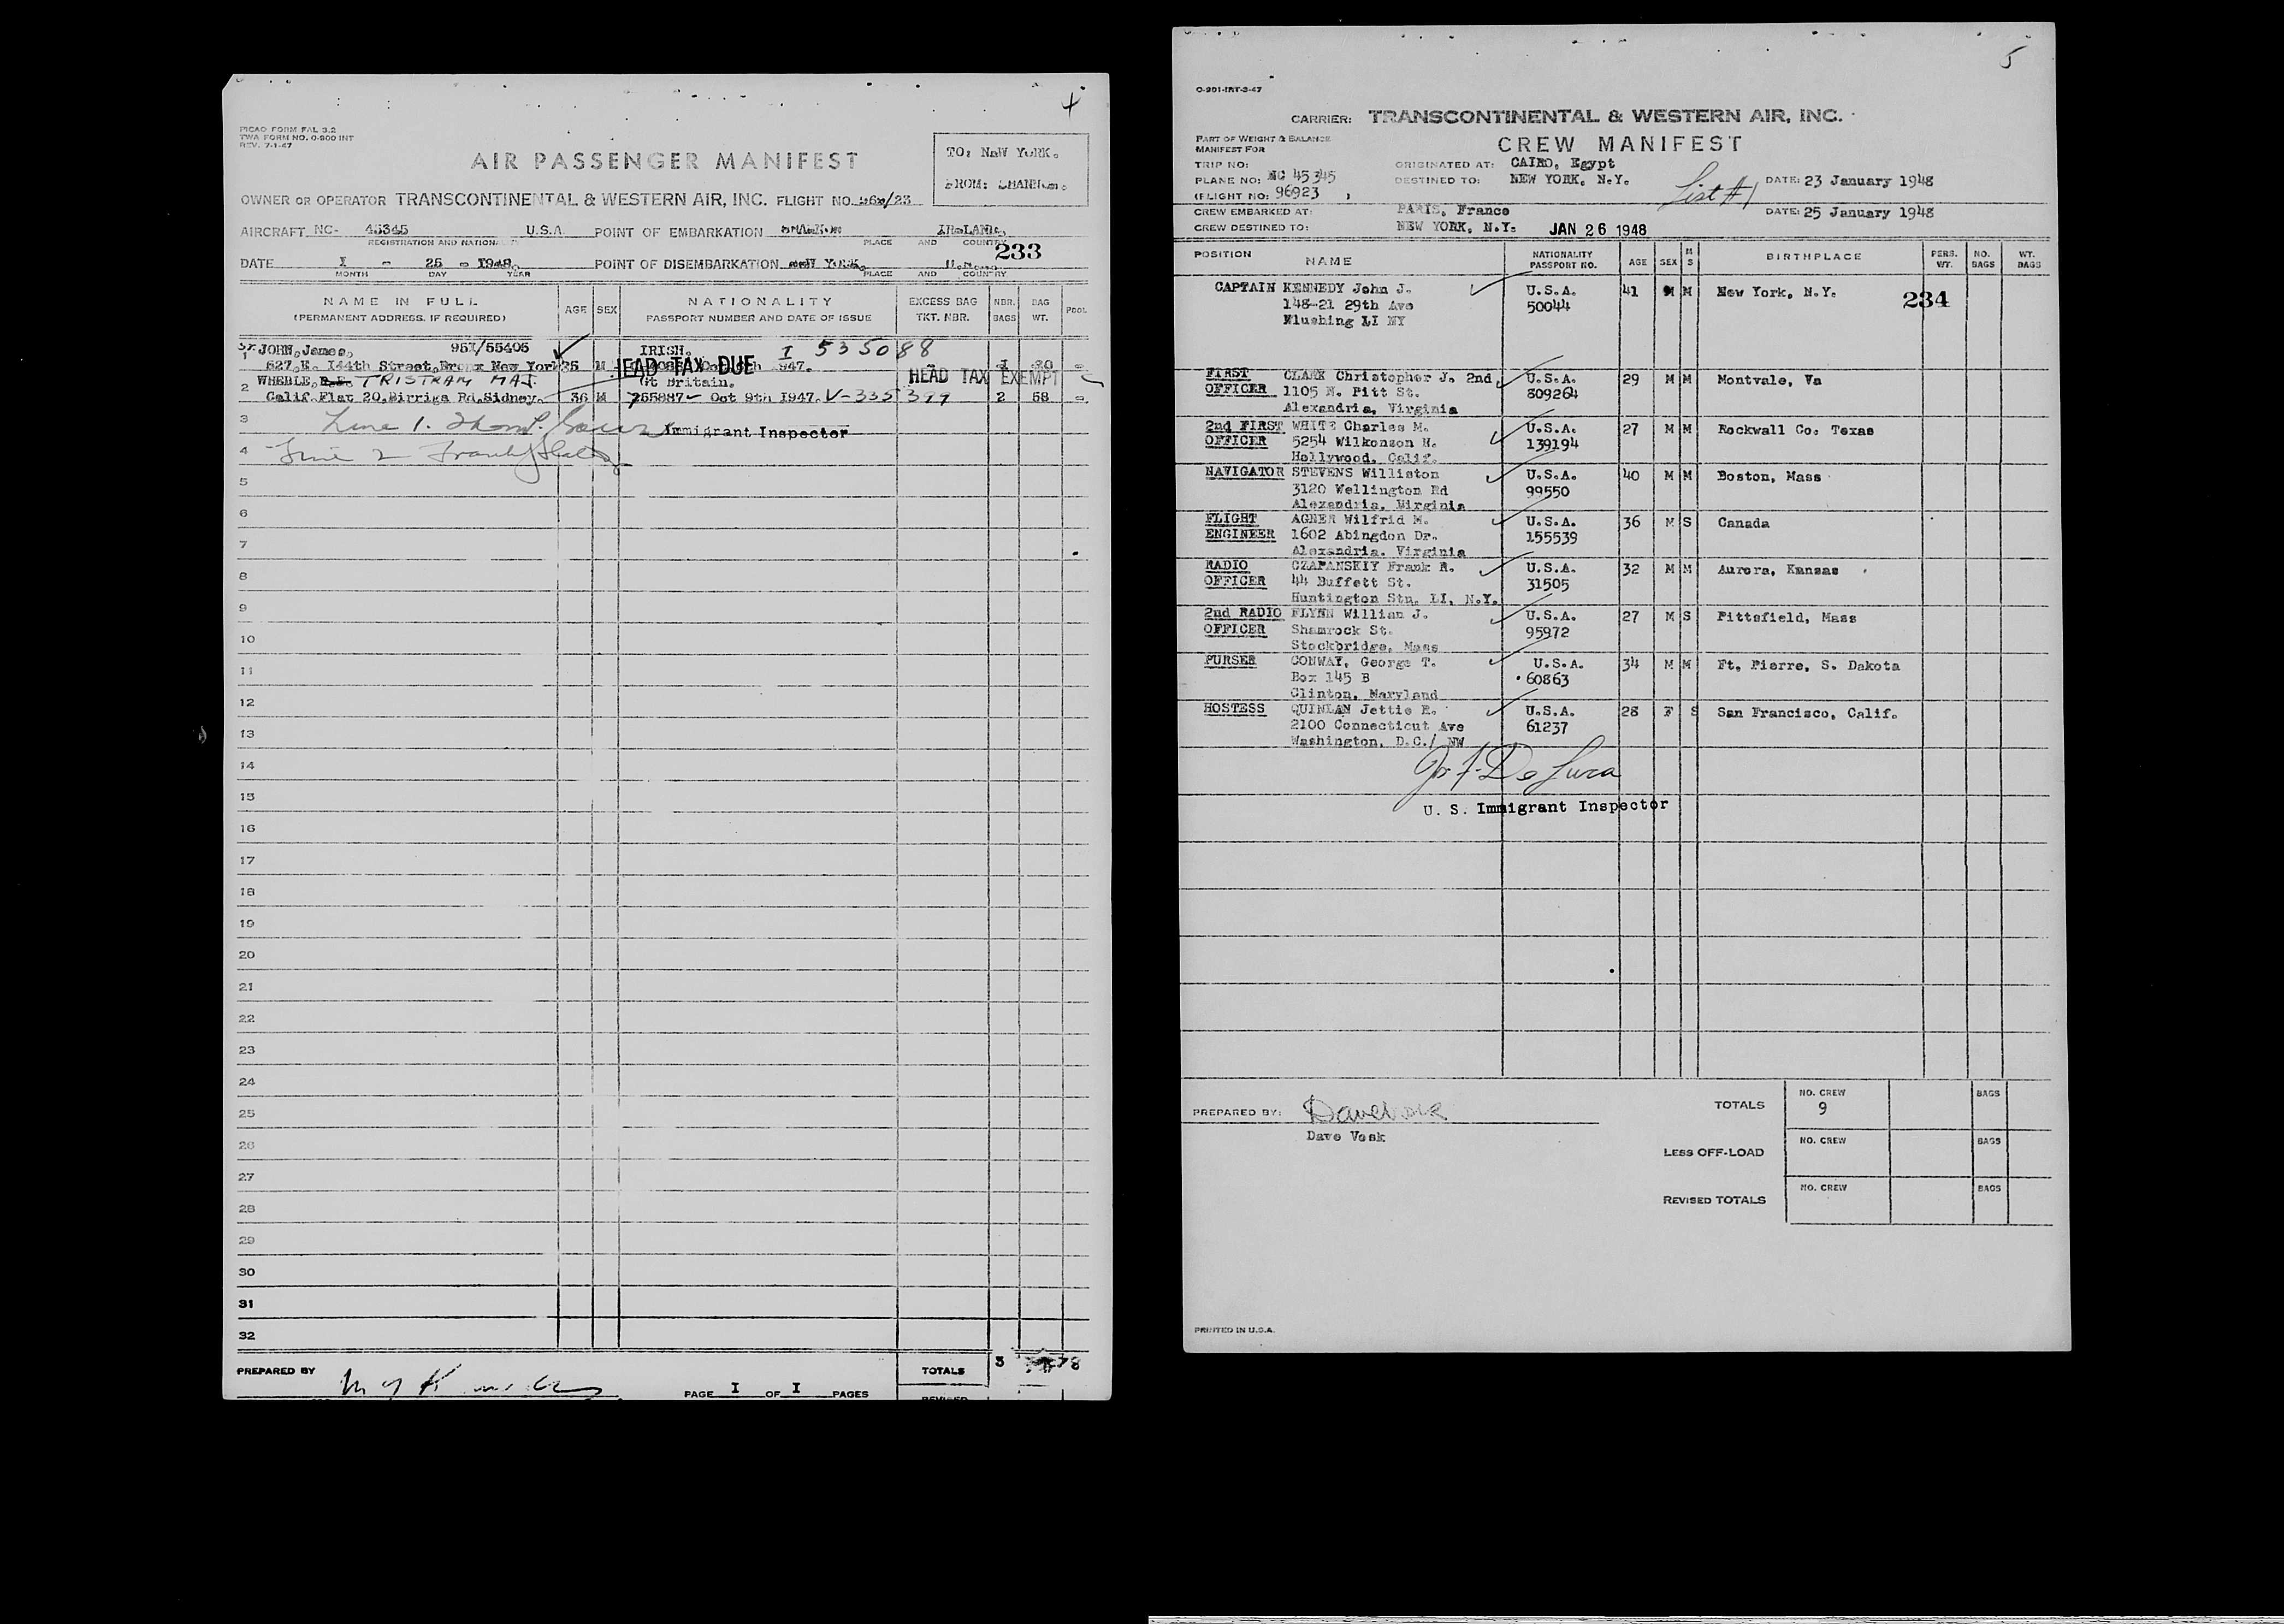 4
PICAO FORM FAL 3.2
TWA FORM NO. 0-900 INT
REV. 7-1-47
AIR PASSENGER MANIFEST
TO: NEW YORK.
FROM: SHANNON.
OWNER OR OPERATOR TRANSCONTINENTAL & WESTERN AIR, INC. FLIGHT NO. /23
AIRCRAFT NC- 45345 U.S.A. POINT OF EMBARKATION SHANNON IRELAND.
REGISTRATION AND NATIONALITY PLACE AND COUNTRY
233
DATE I - 25 - 1948. POINT OF DISEMBARKATION NEW YORK.
MONTH DAY YEAR PLACE AND COUNTRY
NAME IN FULL AGE SEX NATIONALITY EXCESS BAG NBR. BAG POOL
(PERMANENT ADDRESS, IF REQUIRED) PASSPORT NUMBER AND DATE OF ISSUE TKT. NBR. BAGS WT.
1 JOHN, James, 951/55405 IRISH. I 535088
627, E. 144th Street, Bronx New York 35 M HEAD TAX DUE 947. 1 20
2 WHEBLE, TRISTRAM MAJ. Gt Britain. HEAD TAX EXEMPT
Calif. Flat 20, Birriga Rd, Sidney. 36 M 255887 Oct 9th 1947. V-335377 2 58
3 Line 1. Immigrant Inspector
4 Line 2
5
6
7
8
9
10
11
12
13
14
15
16
17
18
19
20
21
22
23
24
25
26
27
28
29
30
31
32
PREPARED BY TOTALS 3 78
PAGE I OF I PAGES REVISED
5
O-901-IRT-3-47
CARRIER: TRANSCONTINENTAL & WESTERN AIR, INC.
PART OF WEIGHT & BALANCE
MANIFEST FOR
CREW MANIFEST
TRIP NO: ORIGINATED AT: CAIRO, Egypt
PLANE NO: NC 45345 DESTINED TO: NEW YORK, N.Y. List #1 DATE: 23 January 1948
(FLIGHT NO: 96923 )
CREW EMBARKED AT: PARIS, France DATE: 25 January 1948
CREW DESTINED TO: NEW YORK, N.Y. JAN 26 1948
POSITION NAME NATIONALITY PASSPORT NO. AGE SEX M S BIRTHPLACE PERS. WT. NO. BAGS WT. BAGS
CAPTAIN KENNEDY John J. U.S.A. 41 M M New York, N.Y. 234
148-21 29th Ave 50044
Flushing LI NY
FIRST CLARK Christopher J. 2nd U.S.A. 29 M M Montvale, Va
OFFICER 1105 N. Pitt St. 809264
Alexandria, Virginia
2nd FIRST WHITE Charles M. U.S.A. 27 M M Rockwall Co. Texas
OFFICER 5254 Wilkonson N. 139194
Hollywood, Calif.
NAVIGATOR STEVENS Williston U.S.A. 40 M M Boston, Mass
3120 Wellington Rd 99550
Alexandria, Virginia
FLIGHT AGNER Wilfrid M. U.S.A. 36 M S Canada
ENGINEER 1602 Abingdon Dr. 155539
Alexandria, Virginia
RADIO CZAPANSKIY Frank R. U.S.A. 32 M M Aurora, Kansas
OFFICER 44 Buffett St. 31505
Huntington Stn. LI, N.Y.
2nd RADIO FLYNN William J. U.S.A. 27 M S Pittsfield, Mass
OFFICER Shamrock St. 95972
Stockbridge, Mass
PURSER CONWAY, George T. U.S.A. 34 M M Ft. Pierre, S. Dakota
Box 145 B 60863
Clinton, Maryland
HOSTESS QUINLAN Jettie R. U.S.A. 28 F S San Francisco, Calif.
2100 Connecticut Ave 61237
Washington, D.C./ NW
De Luca
U. S. Immigrant Inspector
TOTALS NO. CREW 9 BAGS
PREPARED BY:
Dave Vosk
LESS OFF-LOAD NO. CREW BAGS
REVISED TOTALS NO. CREW BAGS
PRINTED IN U.S.A.